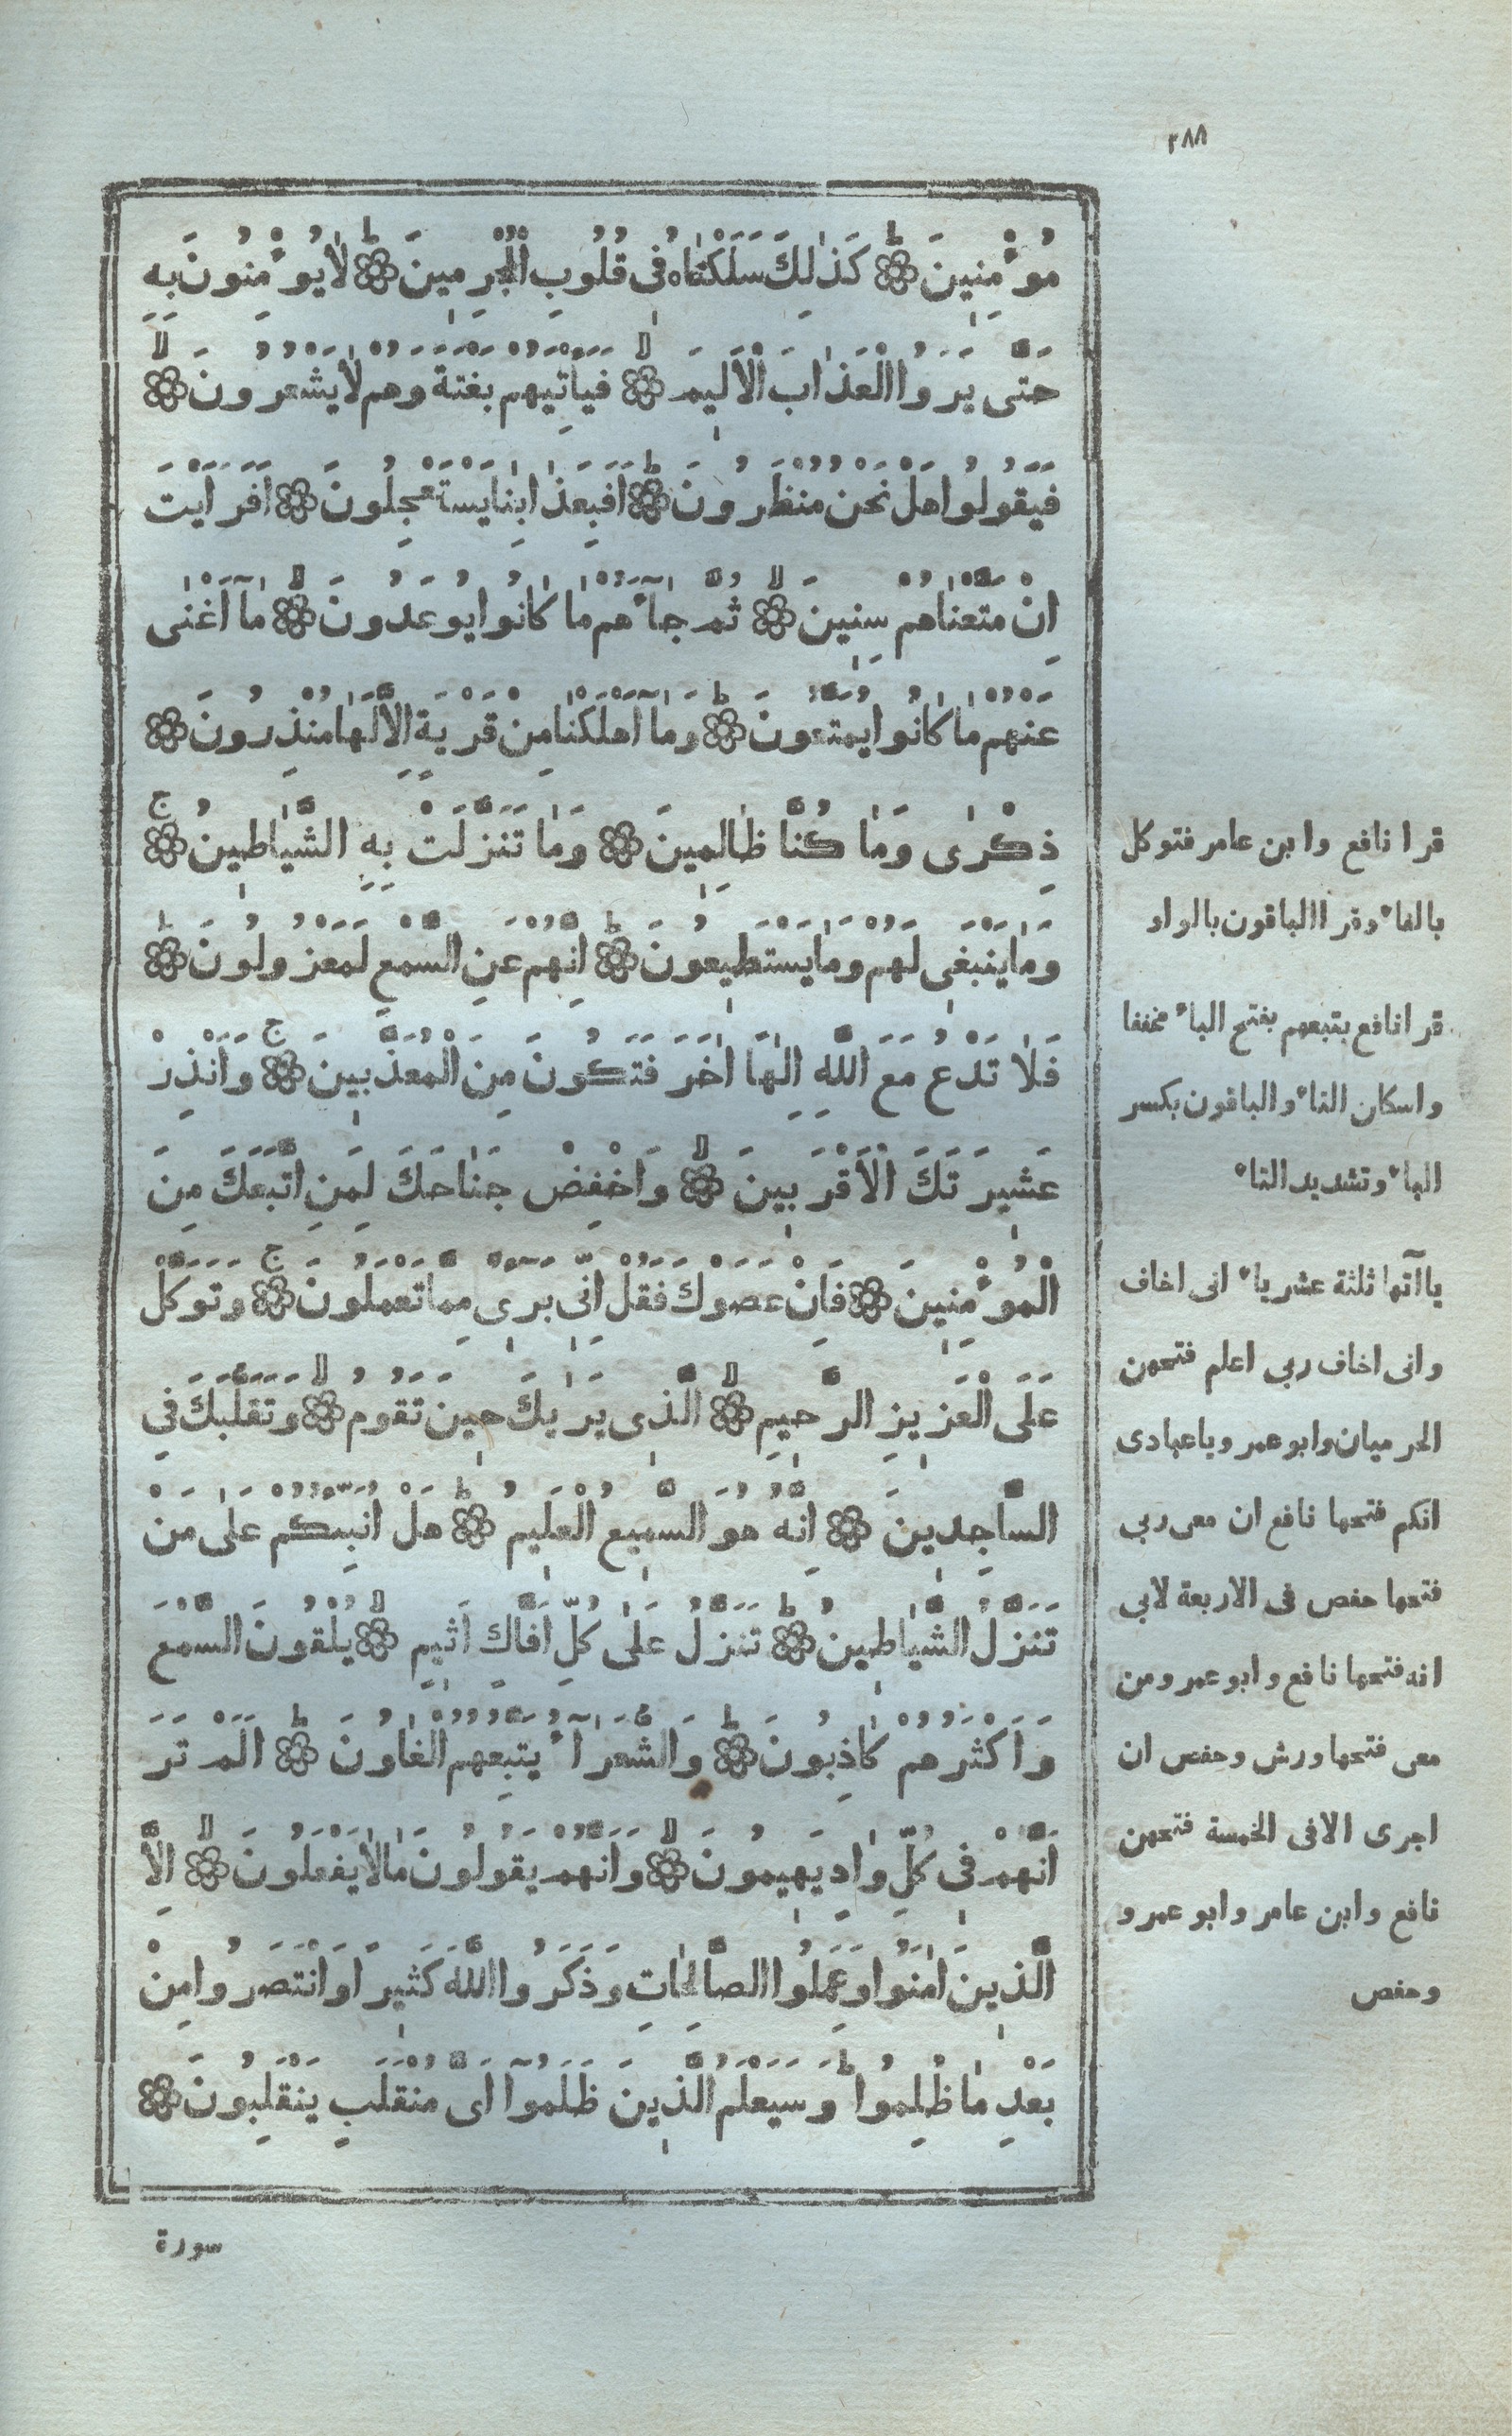 ٢٨٨
مُؤْمِنِينَ ۞ كَذٰلِكَ سَلَكْنٰاهُ فِي قُلُوبِ الْمُجْرِمِينَ ۞ لاٰ يُؤْمِنُونَ بِهِ
حَتّٰى يَرَوُا الْعَذٰابَ الْأَلِيمَ ۞ فَيَأْتِيَهُمْ بَغْتَةً وَهُمْ لاٰ يَشْعُرُونَ ۞
فَيَقُولُوا هَلْ نَحْنُ مُنْظَرُونَ ۞ اَفَبِعَذٰابِنٰا يَسْتَعْجِلُونَ ۞ اَفَرَاَيْتَ
اِنْ مَتَّعْنٰاهُمْ سِنِينَ ۞ ثُمَّ جٰآءَهُمْ مٰا كٰانُوا يُوعَدُونَ ۞ مٰآ اَغْنٰى
عَنْهُمْ مٰا كٰانُوا يُمَتَّعُونَ ۞ وَمٰآ اَهْلَكْنٰا مِنْ قَرْيَةٍ اِلاَّ لَهٰا مُنْذِرُونَ ۞
ذِكْرٰى وَمٰا كُنَّا ظٰالِمِينَ ۞ وَمٰا تَنَزَّلَتْ بِهِ الشَّيٰاطِينُ ج ۞
وَمٰا يَنْبَغِي لَهُمْ وَمٰا يَسْتَطِيعُونَ ۞ اِنَّهُمْ عَنِ السَّمْعِ لَمَعْزُولُونَ ۞
فَلاٰ تَدْعُ مَعَ اللَّهِ اِلٰهًا اٰخَرَ فَتَكُونَ مِنَ الْمُعَذَّبِينَ ج ۞ وَاَنْذِرْ
عَشِيرَتَكَ الْاَقْرَبِينَ ۞ وَاخْفِضْ جَنٰاحَكَ لِمَنِ اتَّبَعَكَ مِنَ
الْمُؤْمِنِينَ ۞ فَاِنْ عَصَوْكَ فَقُلْ اِنِّي بَرِىٓءٌ مِمَّا تَعْمَلُونَ ج ۞ وَتَوَكَّلْ
عَلَى الْعَزِيزِ الرَّحِيمِ ۞ الَّذِي يَرٰيكَ حِينَ تَقُومُ ۞ وَتَقَلُّبَكَ فِي
السَّاجِدِينَ ۞ اِنَّهُ هُوَ السَّمِيعُ الْعَلِيمُ ۞ هَلْ اُنَبِّئُكُمْ عَلٰى مَنْ
تَنَزَّلُ الشَّيٰاطِينُ ۞ تَنَزَّلُ عَلٰى كُلِّ اَفَّاكٍ اَثِيمٍ ۞ يُلْقُونَ السَّمْعَ
وَاَكْثَرُهُمْ كٰاذِبُونَ ۞ وَالشُّعَرٰآءُ يَتَّبِعُهُمُ الْغٰاوُنَ ۞ اَلَمْ تَرَ
اَنَّهُمْ فِي كُلِّ وٰادٍ يَهِيمُونَ ۞ وَاَنَّهُمْ يَقُولُونَ مٰا لاٰ يَفْعَلُونَ ۞ اِلاَّ
الَّذِينَ اٰمَنُوا وَعَمِلُوا الصَّالِحٰاتِ وَذَكَرُوا اللَّهَ كَثِيرًا وَانْتَصَرُوا مِنْ
بَعْدِ مٰا ظُلِمُوا وَسَيَعْلَمُ الَّذِينَ ظَلَمُوآ اَىَّ مُنْقَلَبٍ يَنْقَلِبُونَ ۞
قرا نافع وابن عامر فتوكل
بالفاء وقرا الباقون بالواو
قرا نافع يتبعهم بفتح الباء مخففا
واسكان التاء والباقون بكسر
الباء وتشديد التاء
يا آتها ثلثة عشر ياء انى اخاف
وانى اخاف ربى اعلم فتحهن
الحرميان وابو عمرو يا عبادى
انكم فتحها نافع ان معى ربى
فتحها حفص فى الاربعة لابى
انه فتحها نافع وابو عمرو ومن
معى فتحها ورش وحفص ان
اجرى الا فى الخمسة فتحهن
نافع وابن عامر وابو عمرو
وحفص
سورة